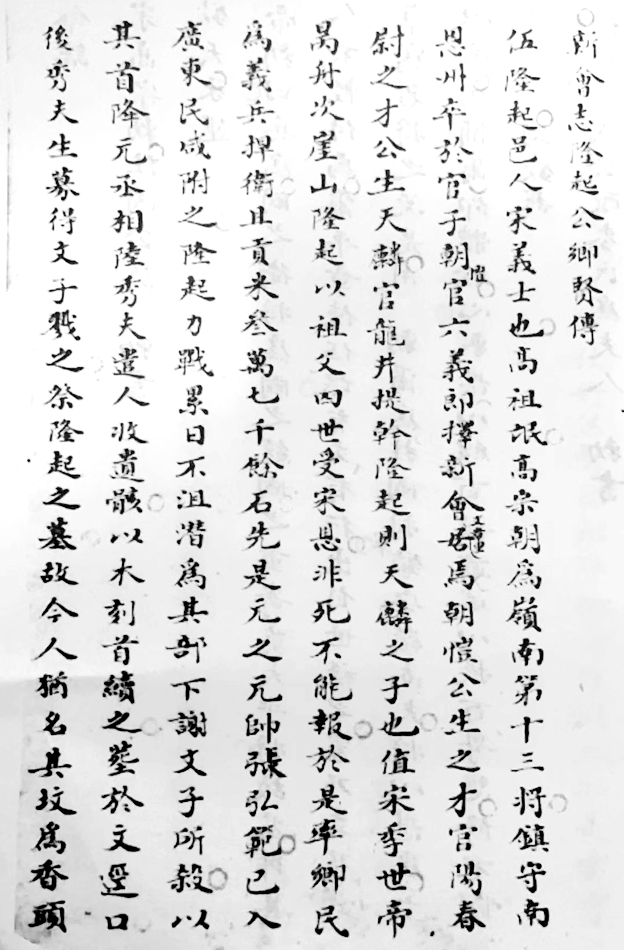 新會志隆起公鄉賢傳
伍隆起邑人宋義士也高祖氓高宗朝為嶺南第十三將鎮守南
恩州卒於官子朝愷官六義郎擇新會文章逕居焉朝愷公生之才官陽春
尉之才公生天麟官龍井提幹隆起則天麟之子也值宋季世帝
昺舟次崖山隆起以祖父四世受宋恩非死不能報於是率鄉民
為義兵捍衛且貢米叁萬七千餘石先是元之元帥張弘範已入
廣東民咸附之隆起力戰累日不沮潛為其部下謝文子所殺以
其首降元丞相陸秀夫遣人收遺骸以木刻首續之塟於文逕口
後秀夫生募得文子戮之祭隆起之墓故今人猶名其坟為香頭